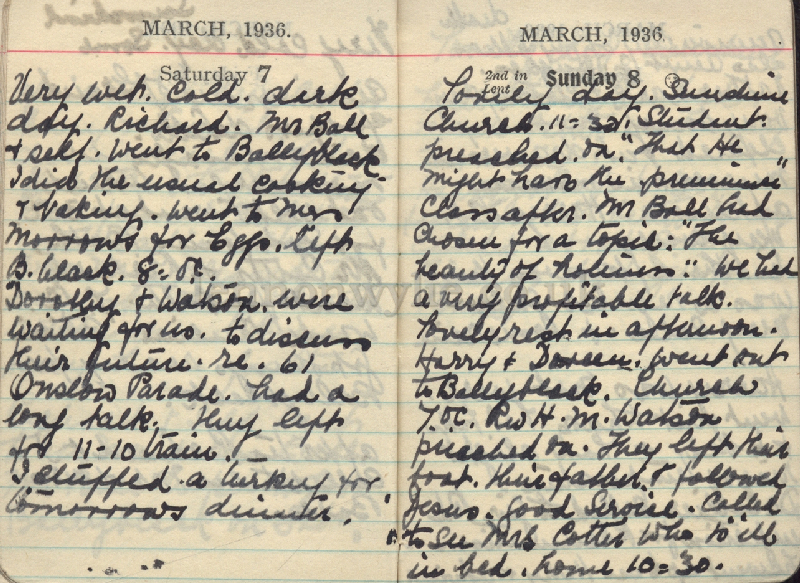 MARCH, 1936.
Saturday 7
Very wet. cold. dark
day. Richard. Mr Ball
& self. went to Ballyblack
I did the usual cooking
& baking. went to Mrs
Morrows for Eggs. left
B.black. 8=oc.
Dorothy & Watson. were
waiting for us. to discuss
their future. re. 61
Onslow Parade. had a
long talk. They left
for 11-10 train.
I stuffed a turkey for
tomorrows dinner.
MARCH, 1936
2nd in Lent Sunday 8
Lovely day. Sunshine
Church. 11=30. Student.
preached. on. "That He
might have the preeminence"
Class after. Mr Ball had
chosen for a topic: "The
beauty of holiness". We had
a very profitable talk.
Lovely rest in afternoon.
Harry & Doreen. went out
to Ballyblack. Church
7.oc. Rev H. M. Watson
preached on. They left their
boat. their father. & followed
Jesus. good Service. Called
to see Mrs Cotter who is ill
in bed. home 10=30.